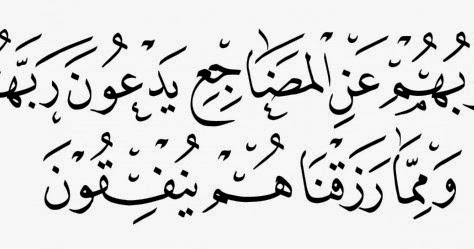 ـوبُهُمْ عَنِ الْمَضَاجِعِ يَدْعُونَ رَبَّهُـ
وَمِمَّا رَزَقْنَاهُمْ يُنْفِقُونَ